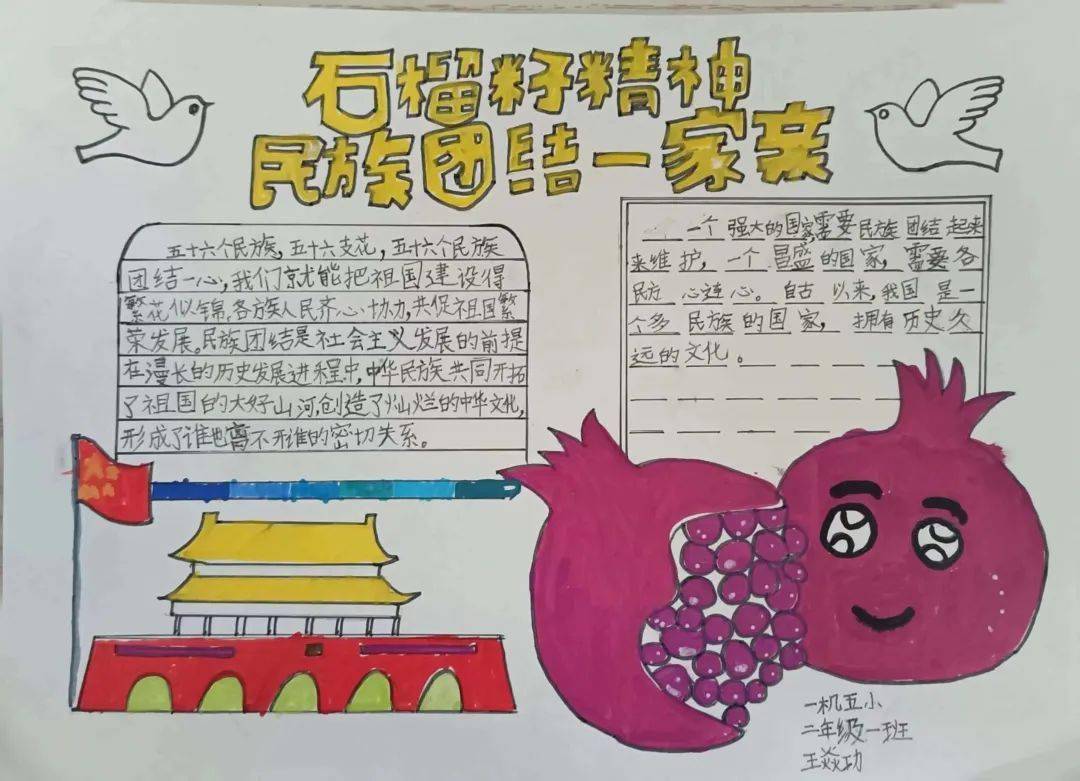 石榴籽精神
民族团结一家亲
五十六个民族,五十六支花,五十六个民族
团结一心,我们京尤能把祖国建设得
繁花似锦,各族人民齐心协力,共促祖国繁
荣发展。民族团结是社会主义发展的前提
在漫长的历史发展进程中,中华民族共同开拓
了祖国的大好山河,创造了灿烂的中华文化,
形成了谁也离不开谁的密切关系。
一个强大的国家需要民族团结起来
来维护,一个昌盛的国家,需要各
民方心连心。自古以来,我国是一
个多民族的国家,拥有历史久
远的文化。
一机五小
二年级一班
王焱功